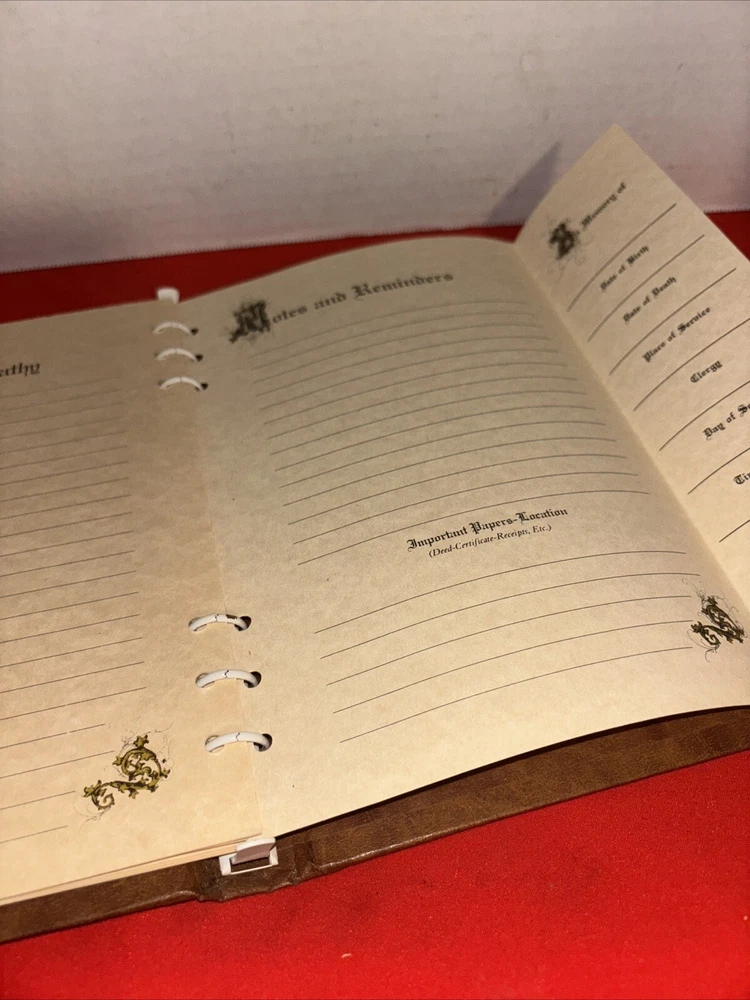 Notes and Reminders
Important Papers-Location
(Deed-Certificate-Receipts, Etc.)
In Memory of
Date of Birth
Date of Death
Place of Service
Clergy
Day of